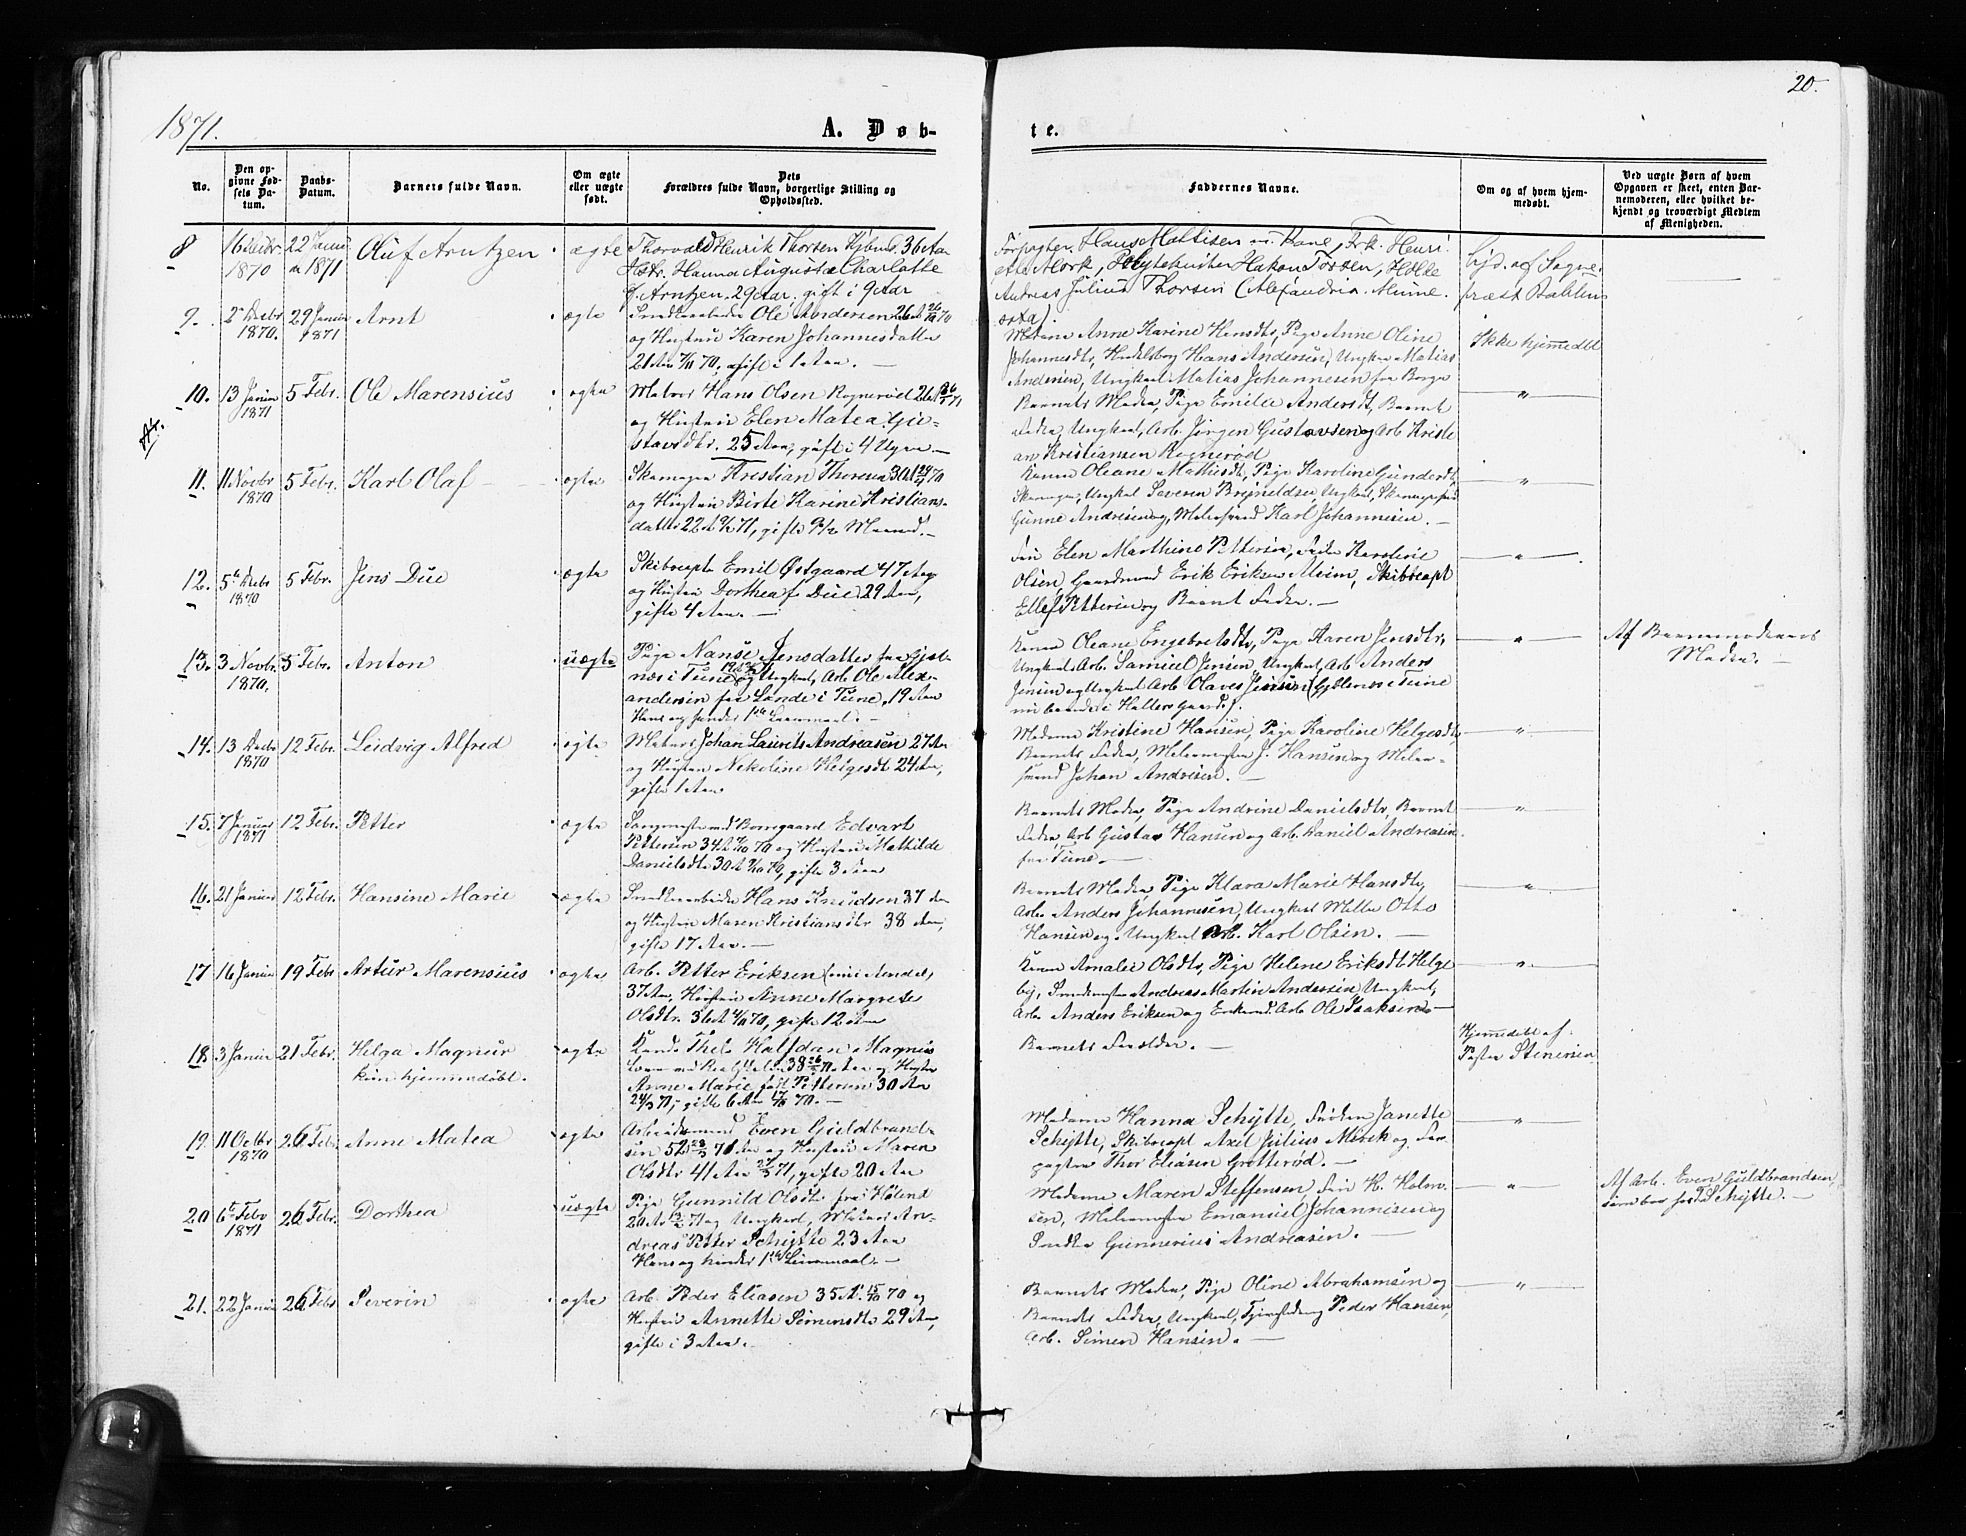 1871.
20.
A. Døb-
te.
No.
Den op-
givne Fød-
sels Da-
tum.
Daabs-
Datum.
Barnets fulde Navn.
Om ægte
eller uægte
født.
Dets
Forældres fulde Navn, borgerlige Stilling og
Opholdssted.
Faddernes Navne.
Om og af hvem hjem-
medøbt.
Ved uægte Børn af hvem
Opgaven er skeet, enten Bar-
nemoderen, eller hvilket be-
kjendt og troværdigt Medlem
af Menigheden.
8
1870
22 Janu
1871
Oluf Arntzen
ægte
Thorvald Henrik Thorsen 36 Aar
Hanna Augusta Charlotte
f. Arntzen. 29 Aar, gift i 9 Aar
Forpagter Hans Mattisen m. Kone, Frk. Henri-
ette Mork, Polytekniker Hakon Torsen,
Andreas Julius Thorsen
af Sogne-
præst
9.
2 Decbr
1870.
29 Januar
1871
Arnt
ægte
Ole Andersen 26
og Hustru Karen Johannesdatter
21 Aar 70, gifte 1 Aar. —
Madame Anne Karine Pige Anne Oline
Johannesdtr, Hans Andersen, Ungkarl Matias
Andersen, Ungkarl Matias Johannesen fra Borge
Ikke hjemmedøbt
10.
13 Januar
1871
5 Febr.
Ole Marensius
ægte
Matros Hans Olsen Rognerød 26
og Hustru Elen Matea Gu-
stavsdtr. 25 Aar, gifte i 4 Uger —
Barnets Moder, Pige Emilie Andersdt, Barnets
Fader, Ungkarl, Arb. Jørgen Gustavsen og Arb. Kristi
an Kristiansen Rognerød
— " —
11.
11 Novbr
1870
5 Febr.
Karl Olaf
ægte
Skomager Kristian Thoresen 30
og Hustru Birte Karine Kristians-
datter 22 71, gifte 9½ Maaned. —
Kone Oleane Mathisdt, Pige Karoline Gundersdt,
Skomager, Ungkarl Severin Brynildsen, Ungkarl,
Gunne Andresen og Karl Johannesen. —
— " —
12.
5 Decbr
1870
5 Febr.
Jens Due
ægte
Skibscapt. Emil Østgaard 47 Aar
og Hustru Dorthea f. Due 29 Aar,
gifte 4 Aar. —
Fru Elen Marthine Pettersen, Karoline
Olsen, Gaardmand Erik Eriksen, Skibscapt
Ellef Pettersen og Barnets Fader. —
— " —
13.
3 Novbr.
1870.
5 Febr.
Anton
uægte
Pige Nanse Jensdatter fra
næs i Tune og Ungkarl, Arb. Ole Alex-
andersen fra Lande i Tune, 19 Aar
Hans og hendes 1ste Leiermaal. —
Kone Oleane Engebretsdtr, Pige Karen Jensdtr,
Ungkarl Arb. Samuel Jensen, Ungkarl, Arb. Anders
Jensen og Ungkarl Arb. Olaves Jensen
— " —
Af Barnemoderens
Moder. —
14.
13 Decbr
1870
12 Febr.
Ludvig Alfred
ægte
Matros Johan Laurits Andreasen 27 Aar
og Hustru Nekoline Helgesdt 24 Aar,
gifte 1 Aar.
Madame Kristine Hansen, Pige Karoline Helgesdt,
Barnets Fader, J. Hansen og
Johan Andresen. —
— " —
15.
7 Januar
1871
12 Febr.
Petter
ægte
Edvart
Pettersen 34 70 og Hustru Mathilde
Danielsdtr 30 70, gifte 3 Aar
Barnets Moder, Pige Andrine Danielsdtr, Barnets
Fader, Arb. Gustav Hansen og Arb. Daniel Andreasen
fra Tune. —
— " —
16.
21 Januar
12 Febr.
Hansine Marie
ægte
Hans Knudsen 37 Aar
og Hustru Maren Kristiansdtr 38 Aar,
gifte 17 Aar. —
Barnets Moder, Pige Klara Marie Hansdtr,
Arb. Anders Johannesen, Ungkarl Otto
Hansen og Ungkarl Arb. Karl Olsen. —
— " —
17
16 Januar
19 Febr
Artur Marensius
ægte
Arb. Petter Eriksen
37 Aar, Hustru Anne Margrete
Olsdtr. 36 70, gifte 12 Aar
Kone Amalie Olsdtr, Pige Helene Eriksdt. Helge
by, Andreas Martin Andersen Ungkarl,
Arb. Anders Eriksen og Arb. Ole Isaksen —
— " —
18
3 Januar
21 Febr.
Helga Magnus
kun hjemmedøbt.
ægte
Halfdan Magnus
38 og Hustru
Anne Marie født Pettersen 30 Aar
gifte 6 Aar 70. —
Barnets Forældre. —
Hjemmedøbt af
Stenersen
19.
11 Octbr
1870
26 Febr.
Anne Matea
ægte
Arbeidsmand Even Guldbrand-
sen 52 71 og Hustru Maren
Olsdtr 41 Aar 71, gifte 20 Aar
Madame Hanna Schytte, Frøken Janette
Schytte, Skibscapt Axel Julius og For-
pagter Thor Eliasen Grotterød. —
— " —
20
6 Febr
1871
26 Febr.
Dorthea
uægte
Pige Gunnild Olsdtr fra Høland
20 71 og Ungkarl, Matros An-
dreas Petter Schytte 23 Aar
Hans og hendes 1ste Leiermaal. —
Madame Maren Steffensen, H. Holm-
sen, Emanuel Johannesen og
Gunnerius Andreasen. —
— " —
Af Arb. Even Guldbrandsen,
Schytte. —
21.
22 Januar
26 Febr
Severin
ægte
Arb. Peder Eliasen 35 70 og
Hustru Annette Simensdtr 29 Aar,
gifte i 3 Aar. —
Barnets Moder, Pige Oline Abrahamsen og
Barnets Fader, Ungkarl, Peder Hansen,
Arb. Simen Hansen. —
— " —